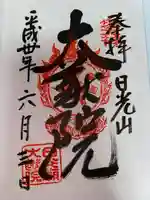 奉拝 日光山
大猷院
平成丗年六月三日